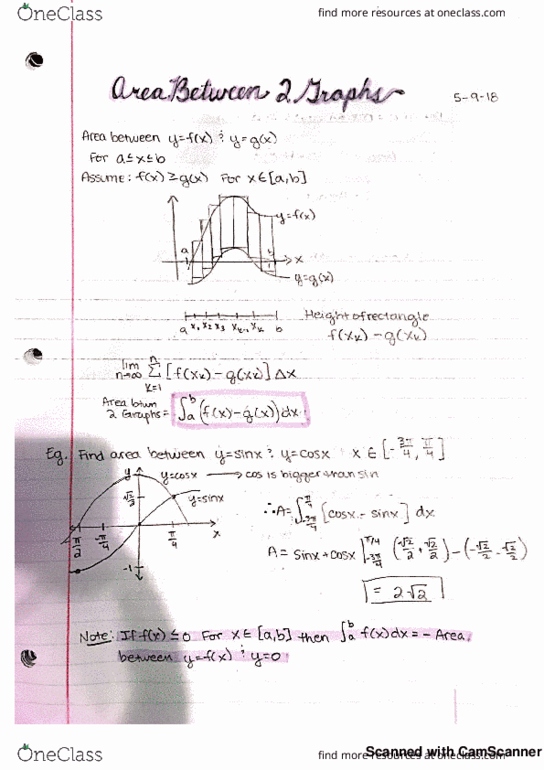 OneClass
find more resources at oneclass.com
Area Between 2 Graphs
5-9-18
Area between y=f(x) & y=g(x)
For a≤x≤b
Assume: f(x) ≥ g(x) For x∈[a,b]
y=f(x)
a
b
x
y=g(x)
a x₁ x₂ x₃ xₖ₋₁ xₖ b
Height of rectangle
f(xₖ) - g(xₖ)
lim n→∞ Σ k=1 n [f(xₖ) - g(xₖ)] Δx
Area btwn
2 Graphs = ∫ₐᵇ (f(x) - g(x)) dx
Eg. Find area between y=sinx & y=cosx x ∈ [-3π/4, π/4]
y y=cosx → cos is bigger than sin
√2/2 y=sinx
∴ A = ∫_{-3π/4}^{π/4} [cosx - sinx] dx
-π/2 -π/4 π/4 x
A = sinx + cosx |_{-3π/4}^{π/4} (√2/2, √2/2) - (-√2/2 - √2/2)
-1
= 2√2
Note: If f(x) ≤ 0 For x∈[a,b] then ∫ₐᵇ f(x)dx = - Area
between y=f(x) & y=0
OneClass
find more resources at oneclass.com
Scanned with CamScanner